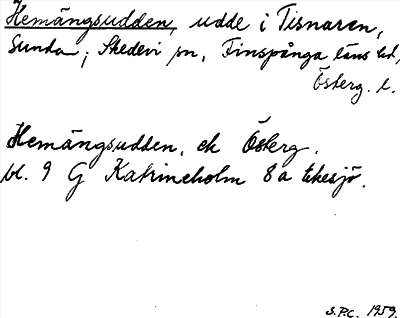 Hemängsudden, udde i Tisnaren,
Sunda, Skedevi sn, Finspånga läns hd,
Österg. l.
Hemängsudden, ek Österg.
bl. 9 G Katrineholm 8a
S.P.C. 1959.